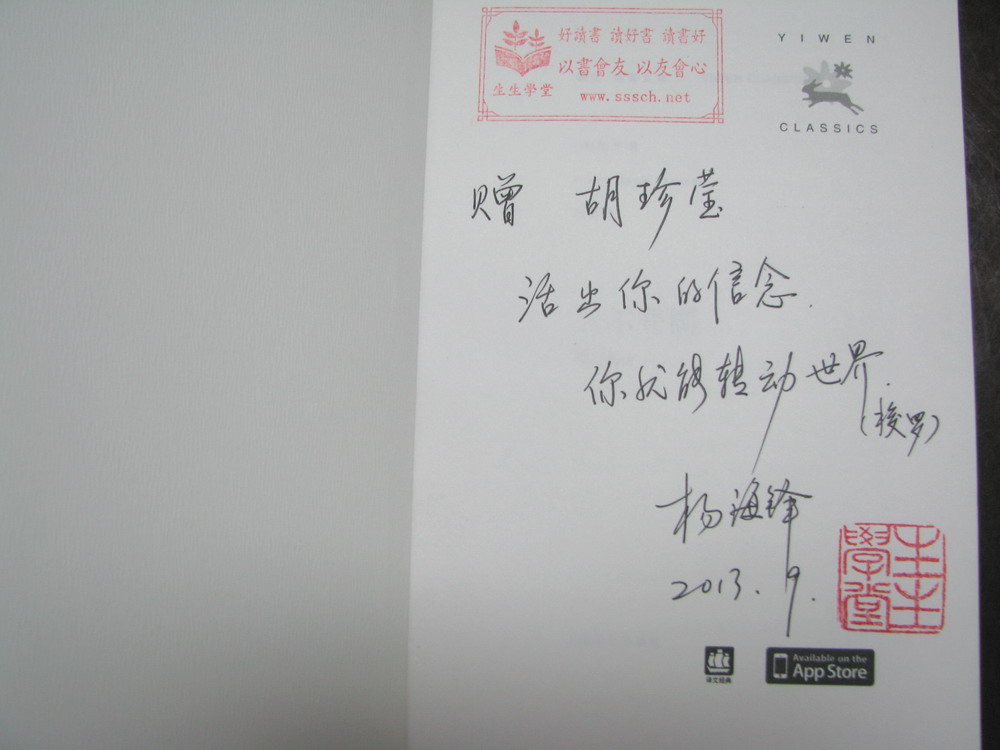 好讀書 讀好書 读書好
以書會友 以友會心
生生學堂
www.sssch.net
YIWEN
CLASSICS
赠 胡珍莹
活出你的信念.
你就能转动世界.
(梭罗)
杨海锋
2013.9.
生生學堂
译文经典
Available on the
App Store